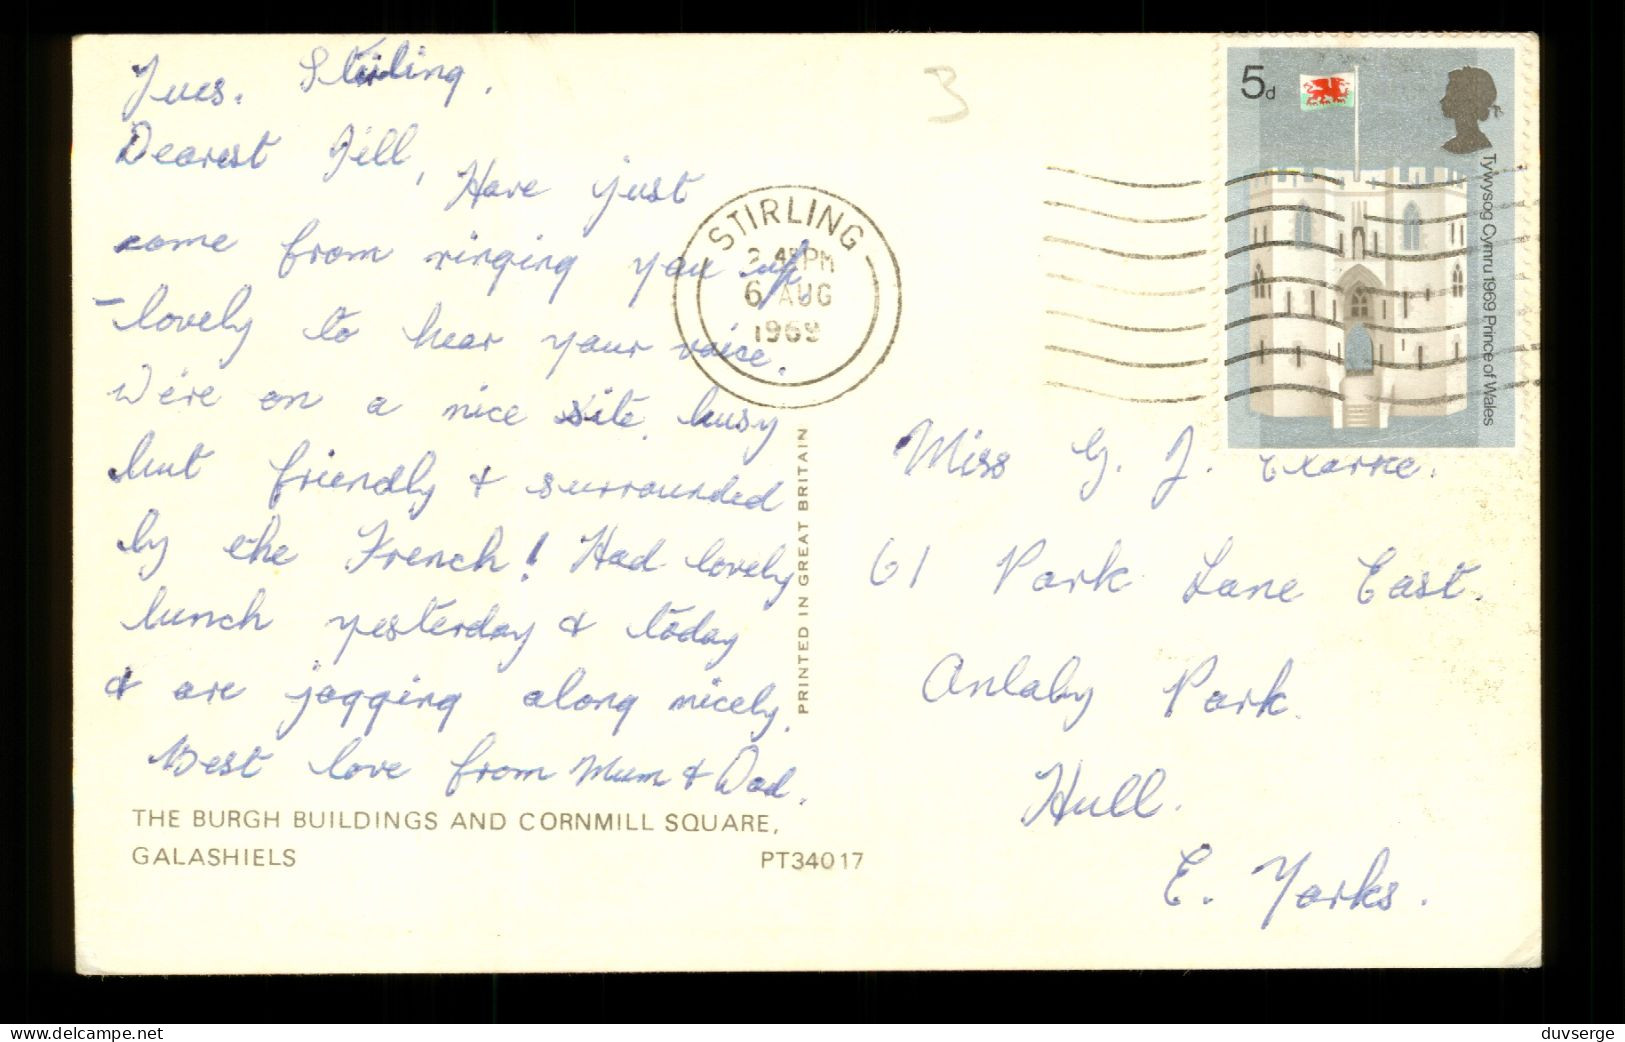 Tues. Stirling.
Dearest Jill, Have just
come from ringing you up,
- lovely to hear your voice.
We're on a nice site, busy
but friendly & surrounded
by the French! Had lovely
lunch yesterday & today
& are jogging along nicely.
Best love from Mum & Dad.
THE BURGH BUILDINGS AND CORNMILL SQUARE,
GALASHIELS
PT34017
PRINTED IN GREAT BRITAIN
3
STIRLING
PM
6 AUG
1969
5d
Tywysog Cymru 1969 Prince of Wales
Miss G. J.
61 Park Lane East.
Anlaby Park.
Hull.
E. Yorks.
www.delcampe.net
duvserge